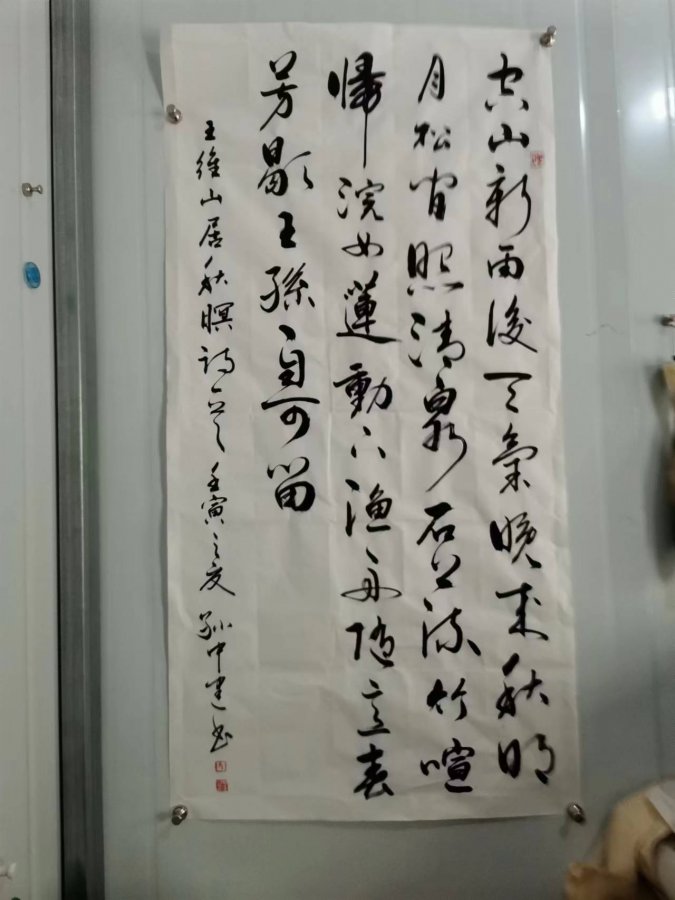 空山新雨後天氣晚來秋明
月松間照清泉石上流竹喧
歸浣女蓮動下漁舟隨意春
芳歇王孫自可留
王維山居秋暝詩一首 壬寅之夏 孫中建書